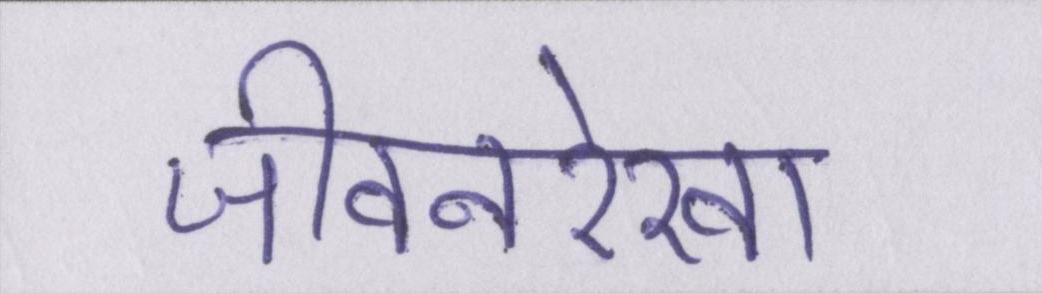 जीवनरेखा